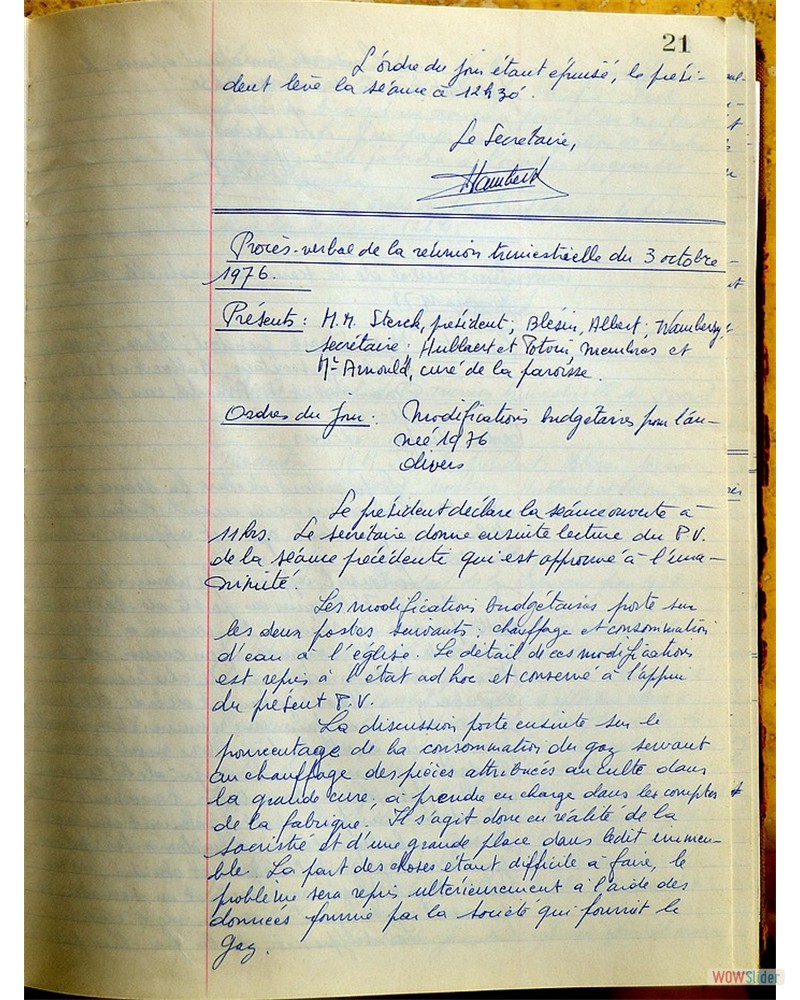 21
L'ordre du jour étant épuisé, le prési-
dent lève la séance à 12h30.
Le Secrétaire,
Procès-verbal de la réunion trimestrielle du 3 octobre
1976.
Présents : M.M. Sterck, président ; Blésin, Albert ;
secrétaire : Hublaert et Potvin, membres et
Mr Arnould, curé de la paroisse.
Ordres du jour : Modifications budgétaires pour l'an-
née 1976
divers
Le président déclare la séance ouverte à
11 hrs. Le secrétaire donne ensuite lecture du P.V.
de la séance précédente qui est approuvé à l'una-
nimité.
Les modifications budgétaires porte sur
les deux postes suivants : chauffage et consommation
d'eau à l'église. Le détail de ces modifications
est repris à l'état ad hoc et conservé à l'appui
du présent P.V.
La discussion porte ensuite sur le
pourcentage de la consommation du gaz servant
au chauffage des pièces attribuées au culte dans
la grande cure, à prendre en charge dans les comptes
de la fabrique. Il s'agit donc en réalité de la
sacristie et d'une grande place dans ledit immeu-
ble. La part des choses étant difficile à faire, le
problème sera repris ultérieurement à l'aide des
données fournie par la société qui fournit le
gaz.
WOWSlider